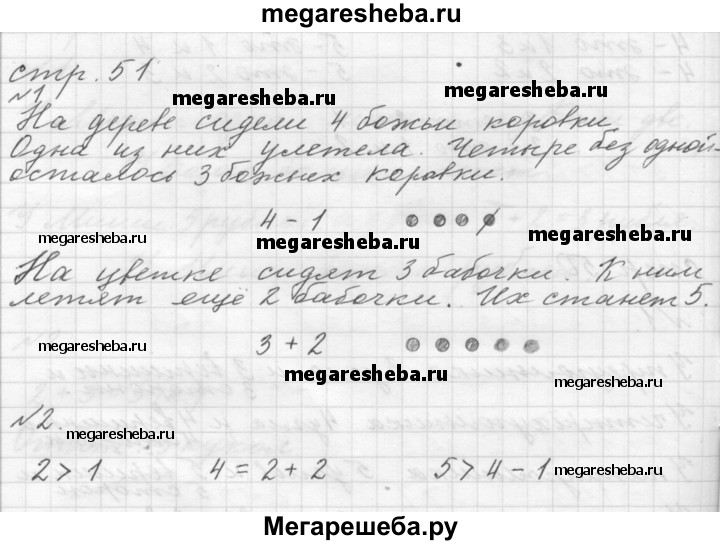 megaresheba.ru
стр. 51
№1
megaresheba.ru megaresheba.ru
На дереве сидели 4 божьи коровки.
Одна из них улетела. Четыре без одной -
осталось 3 божьих коровки.
4 - 1
megaresheba.ru megaresheba.ru megaresheba.ru
На цветке сидят 3 бабочки. К ним
летят ещё 2 бабочки. Их станет 5.
3 + 2
megaresheba.ru megaresheba.ru megaresheba.ru
№2.
megaresheba.ru
2 > 1 4 = 2 + 2 5 > 4 - 1 megaresheba.ru
Мегарешеба.ру